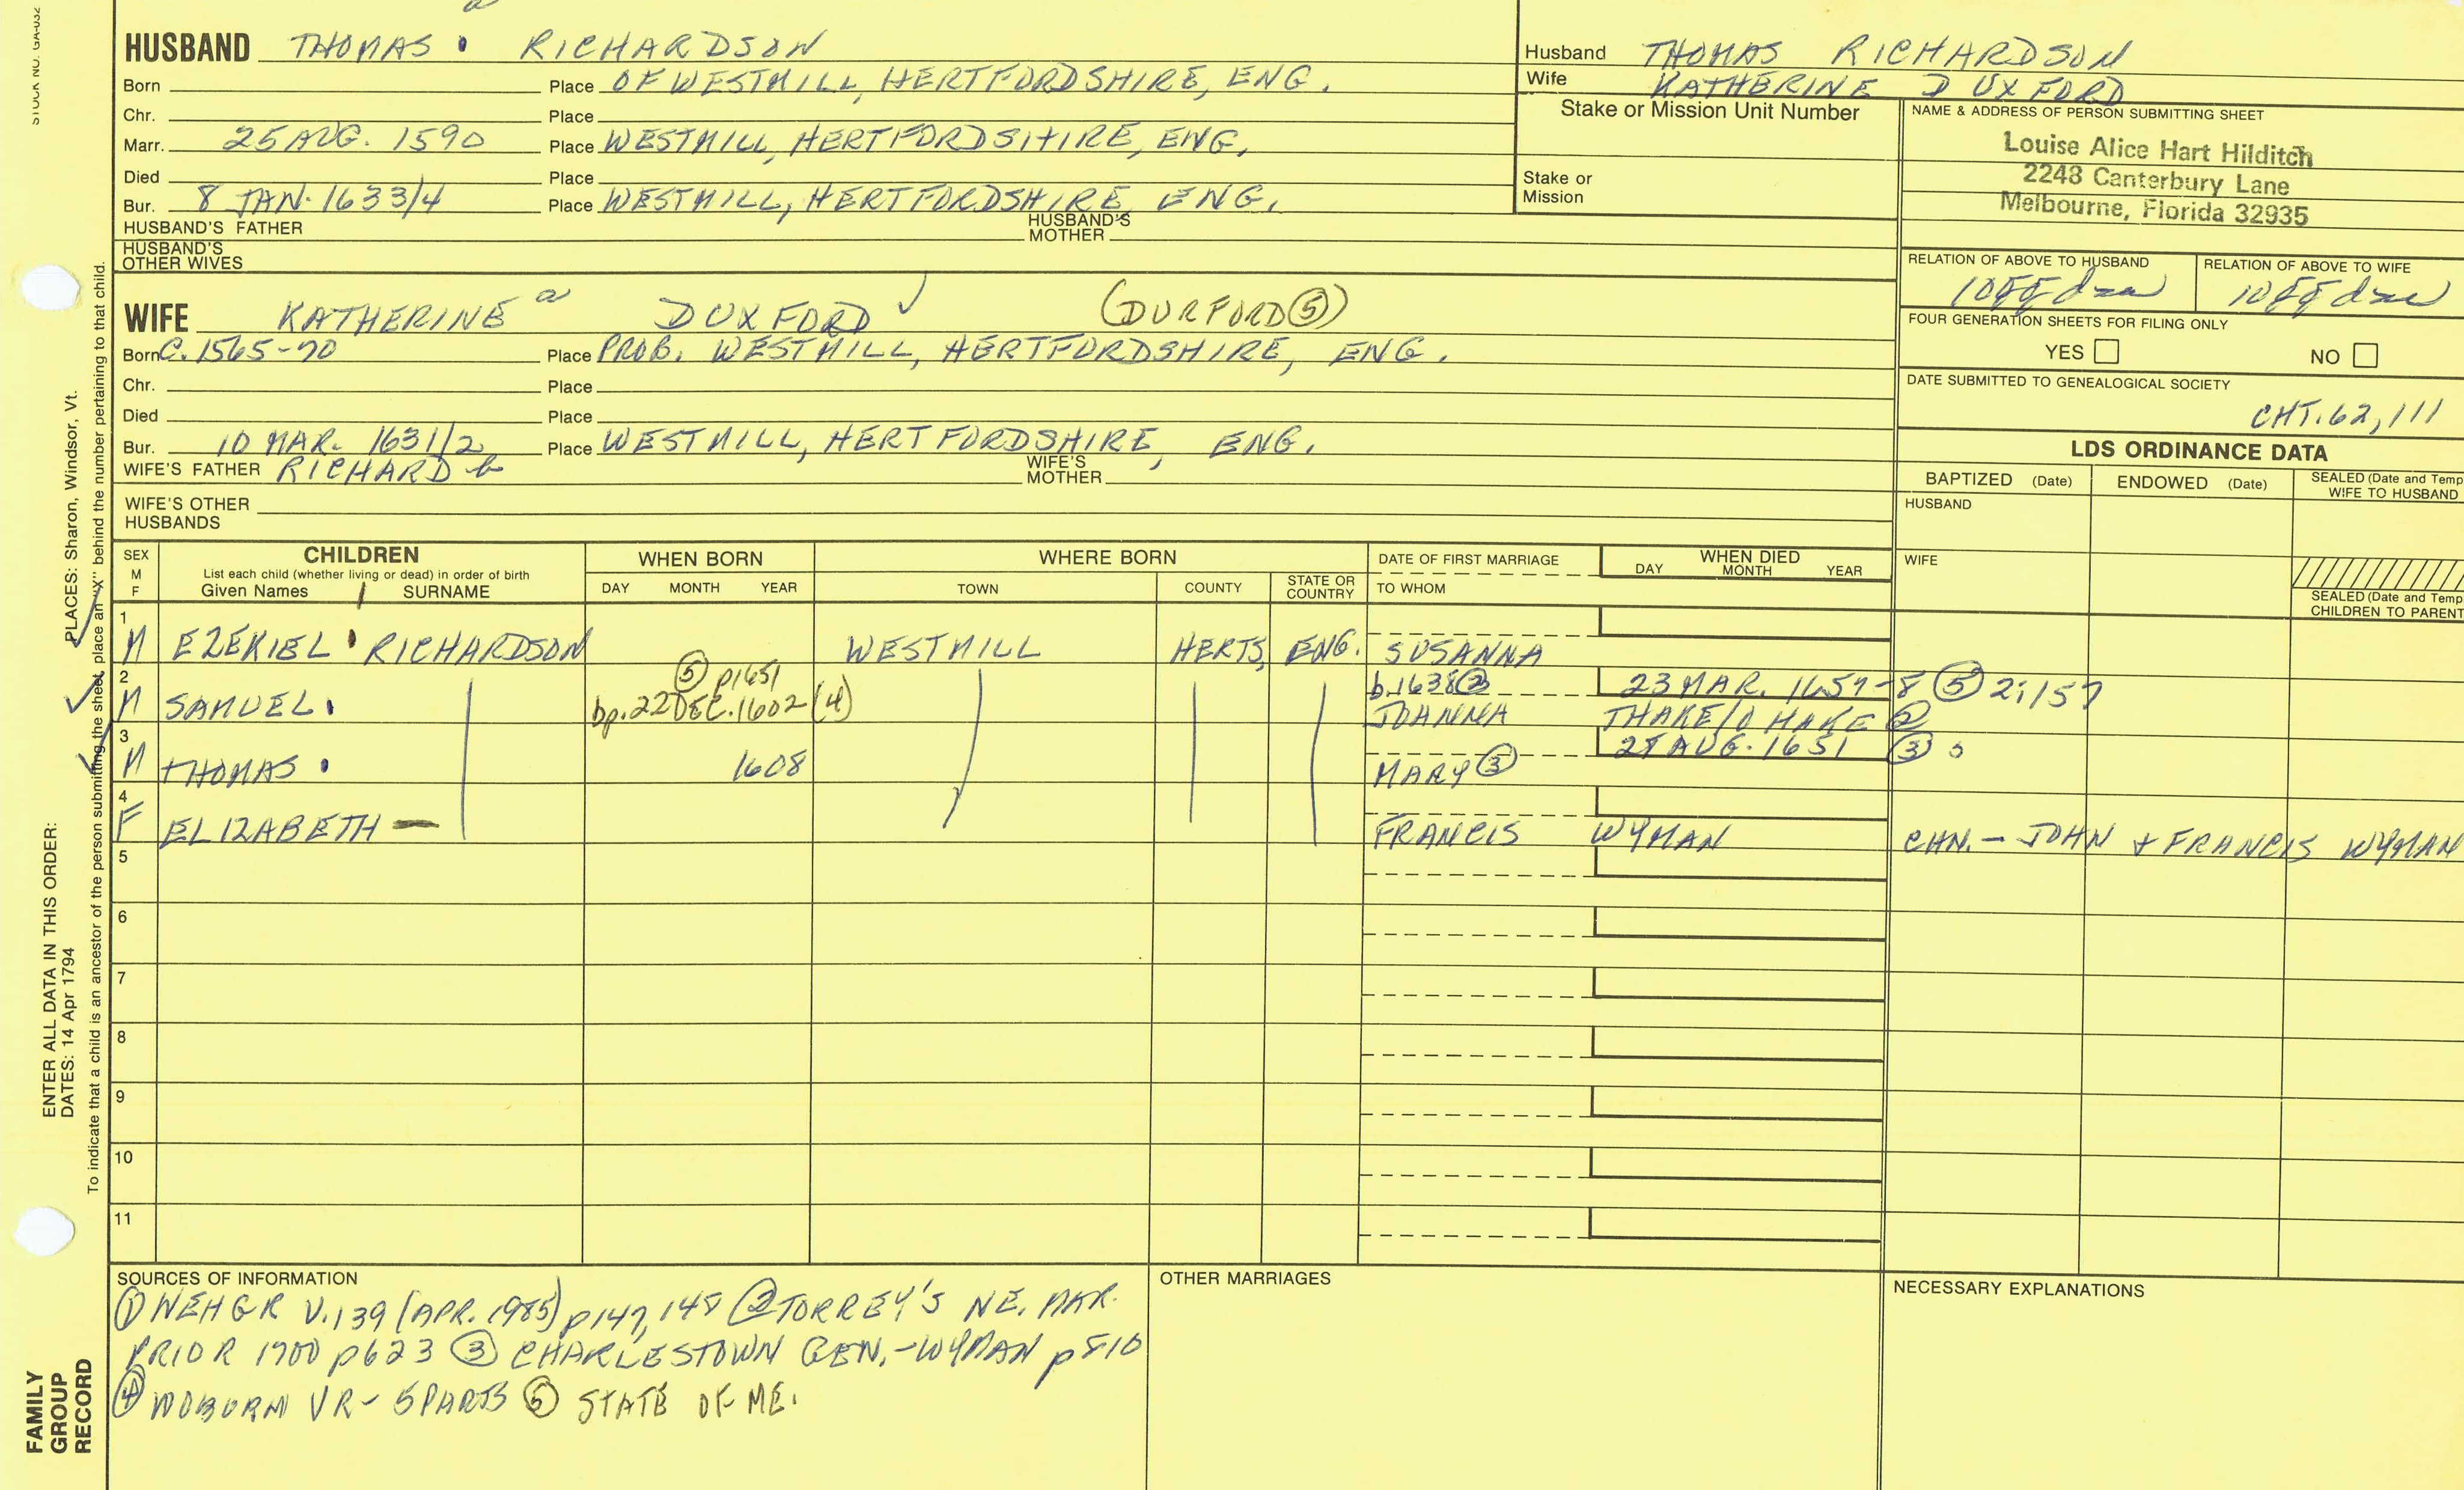 STOCK NO. GA-032
HUSBAND THOMAS RICHARDSON
Born Place OF WESTMILL, HERTFORDSHIRE, ENG.
Chr. Place
Marr. 25 AUG. 1590 Place WESTMILL, HERTFORDSHIRE, ENG.
Died Place
Bur. 8 JAN. 1633/4 Place WESTMILL, HERTFORDSHIRE, ENG.
HUSBAND'S FATHER HUSBAND'S MOTHER
HUSBAND'S OTHER WIVES
WIFE KATHERINE a DUXFORD (DURFORD ⑤)
Born C. 1565-70 Place PROB. WESTMILL, HERTFORDSHIRE, ENG.
Chr. Place
Died Place
Bur. 10 MAR. 1631/2 Place WESTMILL, HERTFORDSHIRE, ENG.
WIFE'S FATHER RICHARD b WIFE'S MOTHER
WIFE'S OTHER HUSBANDS
Husband THOMAS RICHARDSON
Wife KATHERINE DUXFORD
Stake or Mission Unit Number
Stake or Mission
NAME & ADDRESS OF PERSON SUBMITTING SHEET
Louise Alice Hart Hilditch
2248 Canterbury Lane
Melbourne, Florida 32935
RELATION OF ABOVE TO HUSBAND RELATION OF ABOVE TO WIFE
FOUR GENERATION SHEETS FOR FILING ONLY
YES NO
DATE SUBMITTED TO GENEALOGICAL SOCIETY
CHT. 62, 111
LDS ORDINANCE DATA
BAPTIZED (Date) ENDOWED (Date) SEALED (Date and Temp
WIFE TO HUSBAND
HUSBAND
WIFE
SEALED (Date and Temp
CHILDREN TO PARENT
SEX M F
CHILDREN
List each child (whether living or dead) in order of birth
Given Names SURNAME
WHEN BORN
DAY MONTH YEAR
WHERE BORN
TOWN COUNTY STATE OR COUNTRY
DATE OF FIRST MARRIAGE
TO WHOM
WHEN DIED
DAY MONTH YEAR
1 M EZEKIEL RICHARDSON WESTMILL HERTS, ENG. SUSANNA
⑤ p1651
2 M SAMUEL bp. 22 DEC. 1602 (4) b. 1638 ② 23 MAR. 1657-8 ⑤ 2:157
JOHANNA THAKE/ ②
3 M THOMAS 1608 28 AUG. 1651 ③
MARY ③
4 F ELIZABETH — FRANCIS WYMAN CHN. - JOHN + FRANCIS WYMAN
5
6
7
8
9
10
11
SOURCES OF INFORMATION
① NEHGR V. 139 (APR. 1985) p147, 148 ② TORREY'S NE. MAR.
PRIOR 1700 p623 ③ CHARLESTOWN GEN. - WYMAN p810
④ WOBURN VR - 5 PARTS ⑤ STATE OF ME.
OTHER MARRIAGES
NECESSARY EXPLANATIONS
ENTER ALL DATA IN THIS ORDER:
DATES: 14 Apr 1794 PLACES: Sharon, Windsor, Vt.
To indicate that a child is an ancestor of the person submitting the sheet, place an "X" behind the number pertaining to that child.
FAMILY
GROUP
RECORD